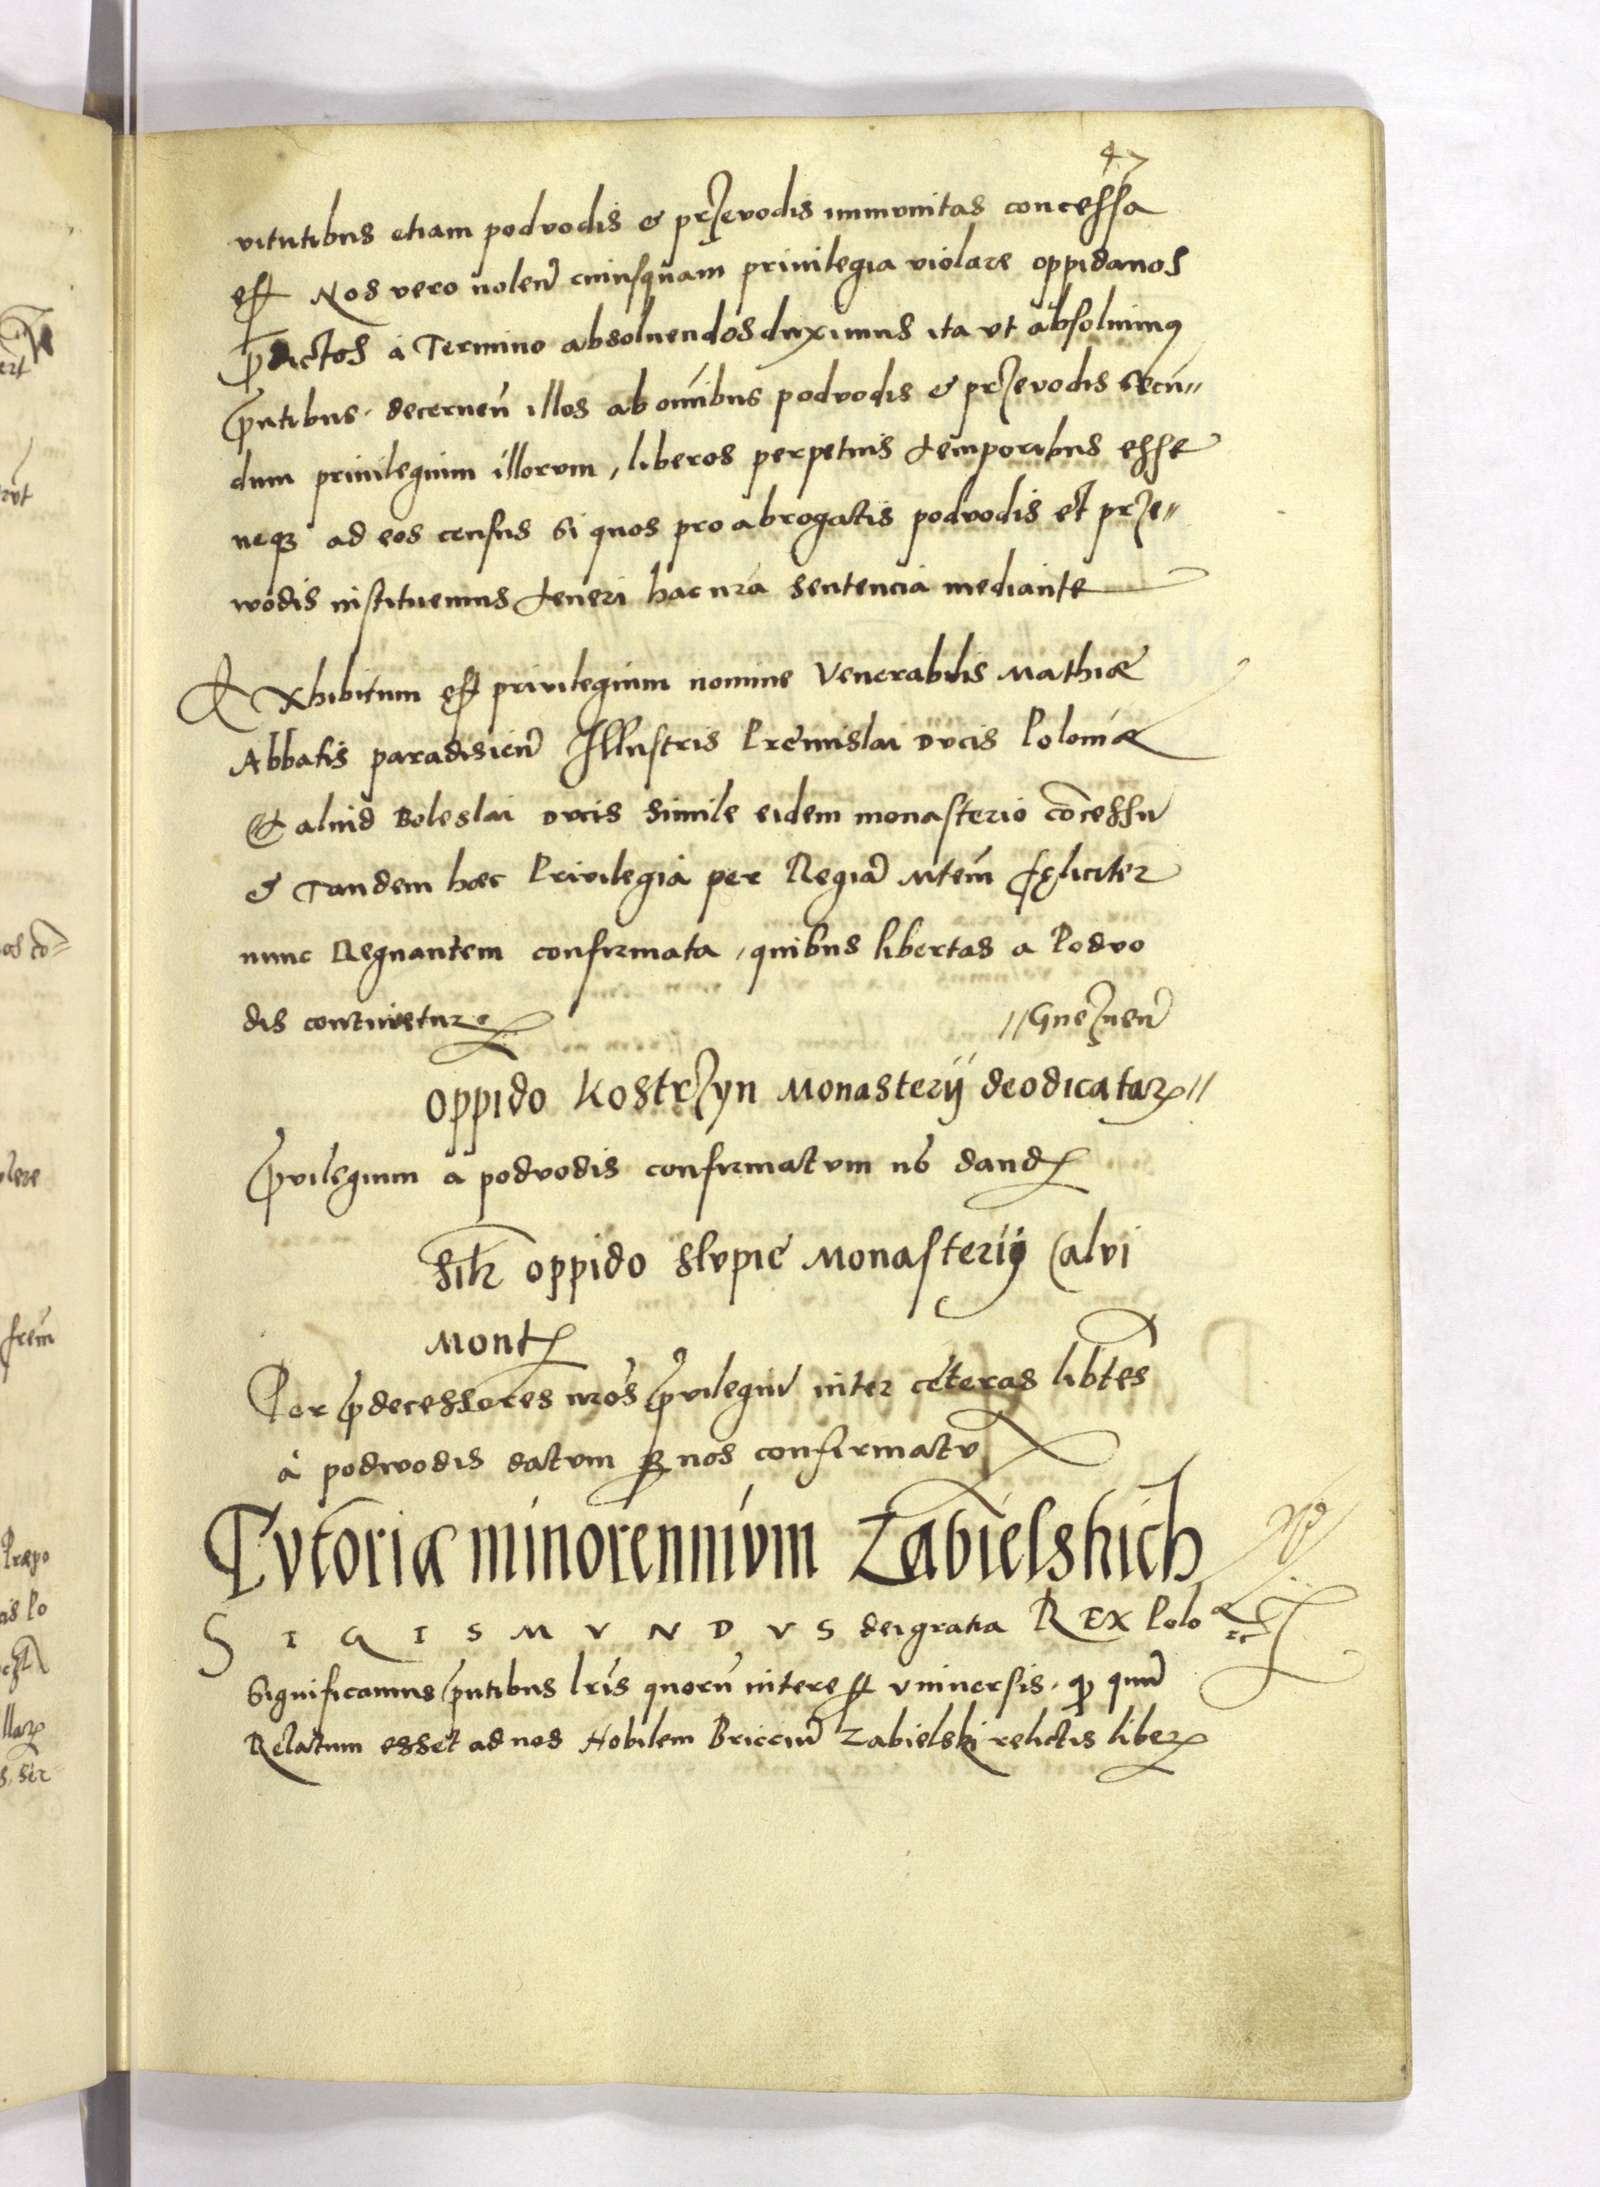 47
vitutibus etiam podvodis & przevodis immunitas concessa
est Nos vero nolen̄ cuiusquam privilegia violare oppidanos
p̄dictos á Termino absoluendos duximus ita vt absoluimꝰ
p̄ntibus. decernen̄ illos ab om̄ibus podvodis & przevodis secū„
dum privilegium illorum, liberos perpetuis temporibus esse
neqꝫ ad eos census si quos pro abrogatis podvodis et prze„
wodis instituemus teneri hac nr̄a sentencia mediante
Exhibitum est privilegium nomine Venerabilis Mathiæ
Abbatis paradisien̄ Illustris Premislai Ducis Poloniæ
Et aliud Boleslai Ducis simile eidem monasterio cōcessū
& Tandem hæc Privilegia per Regiā Mtem̄ feliciter
nunc Regnantem confirmata, quibus libertas a Podvo
dis continetur
//Gneznen̄
Oppido Kostrzyn Monasterij deodicataꝝ//
p̄vilegium á podvodis confirmatum nō dandꝭ
Silr̄ oppido Slupie Monasterij Calvi
Montꝭ
Per p̄decessores nr̄os p̄vilegiū inter céteras libtēs
á podwodis datum ꝑ nos confirmatū
Tutoria minorennium Zabielskich
SIGISMVNDVS dei gratia REX Poloæ
Significamus p̄ntibus lr̄is quorū interest vniuersis. ꝙ quū
Relatum esset ad nos Nobilem Bricciū Zabielski relictis liberꝭ